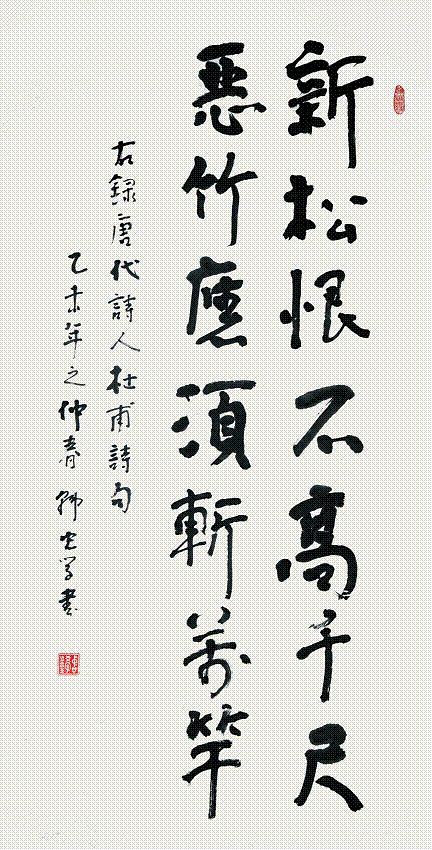 新松恨不高千尺
惡竹應須斬萬竿
右錄唐代詩人杜甫詩句
乙未年之仲春 书